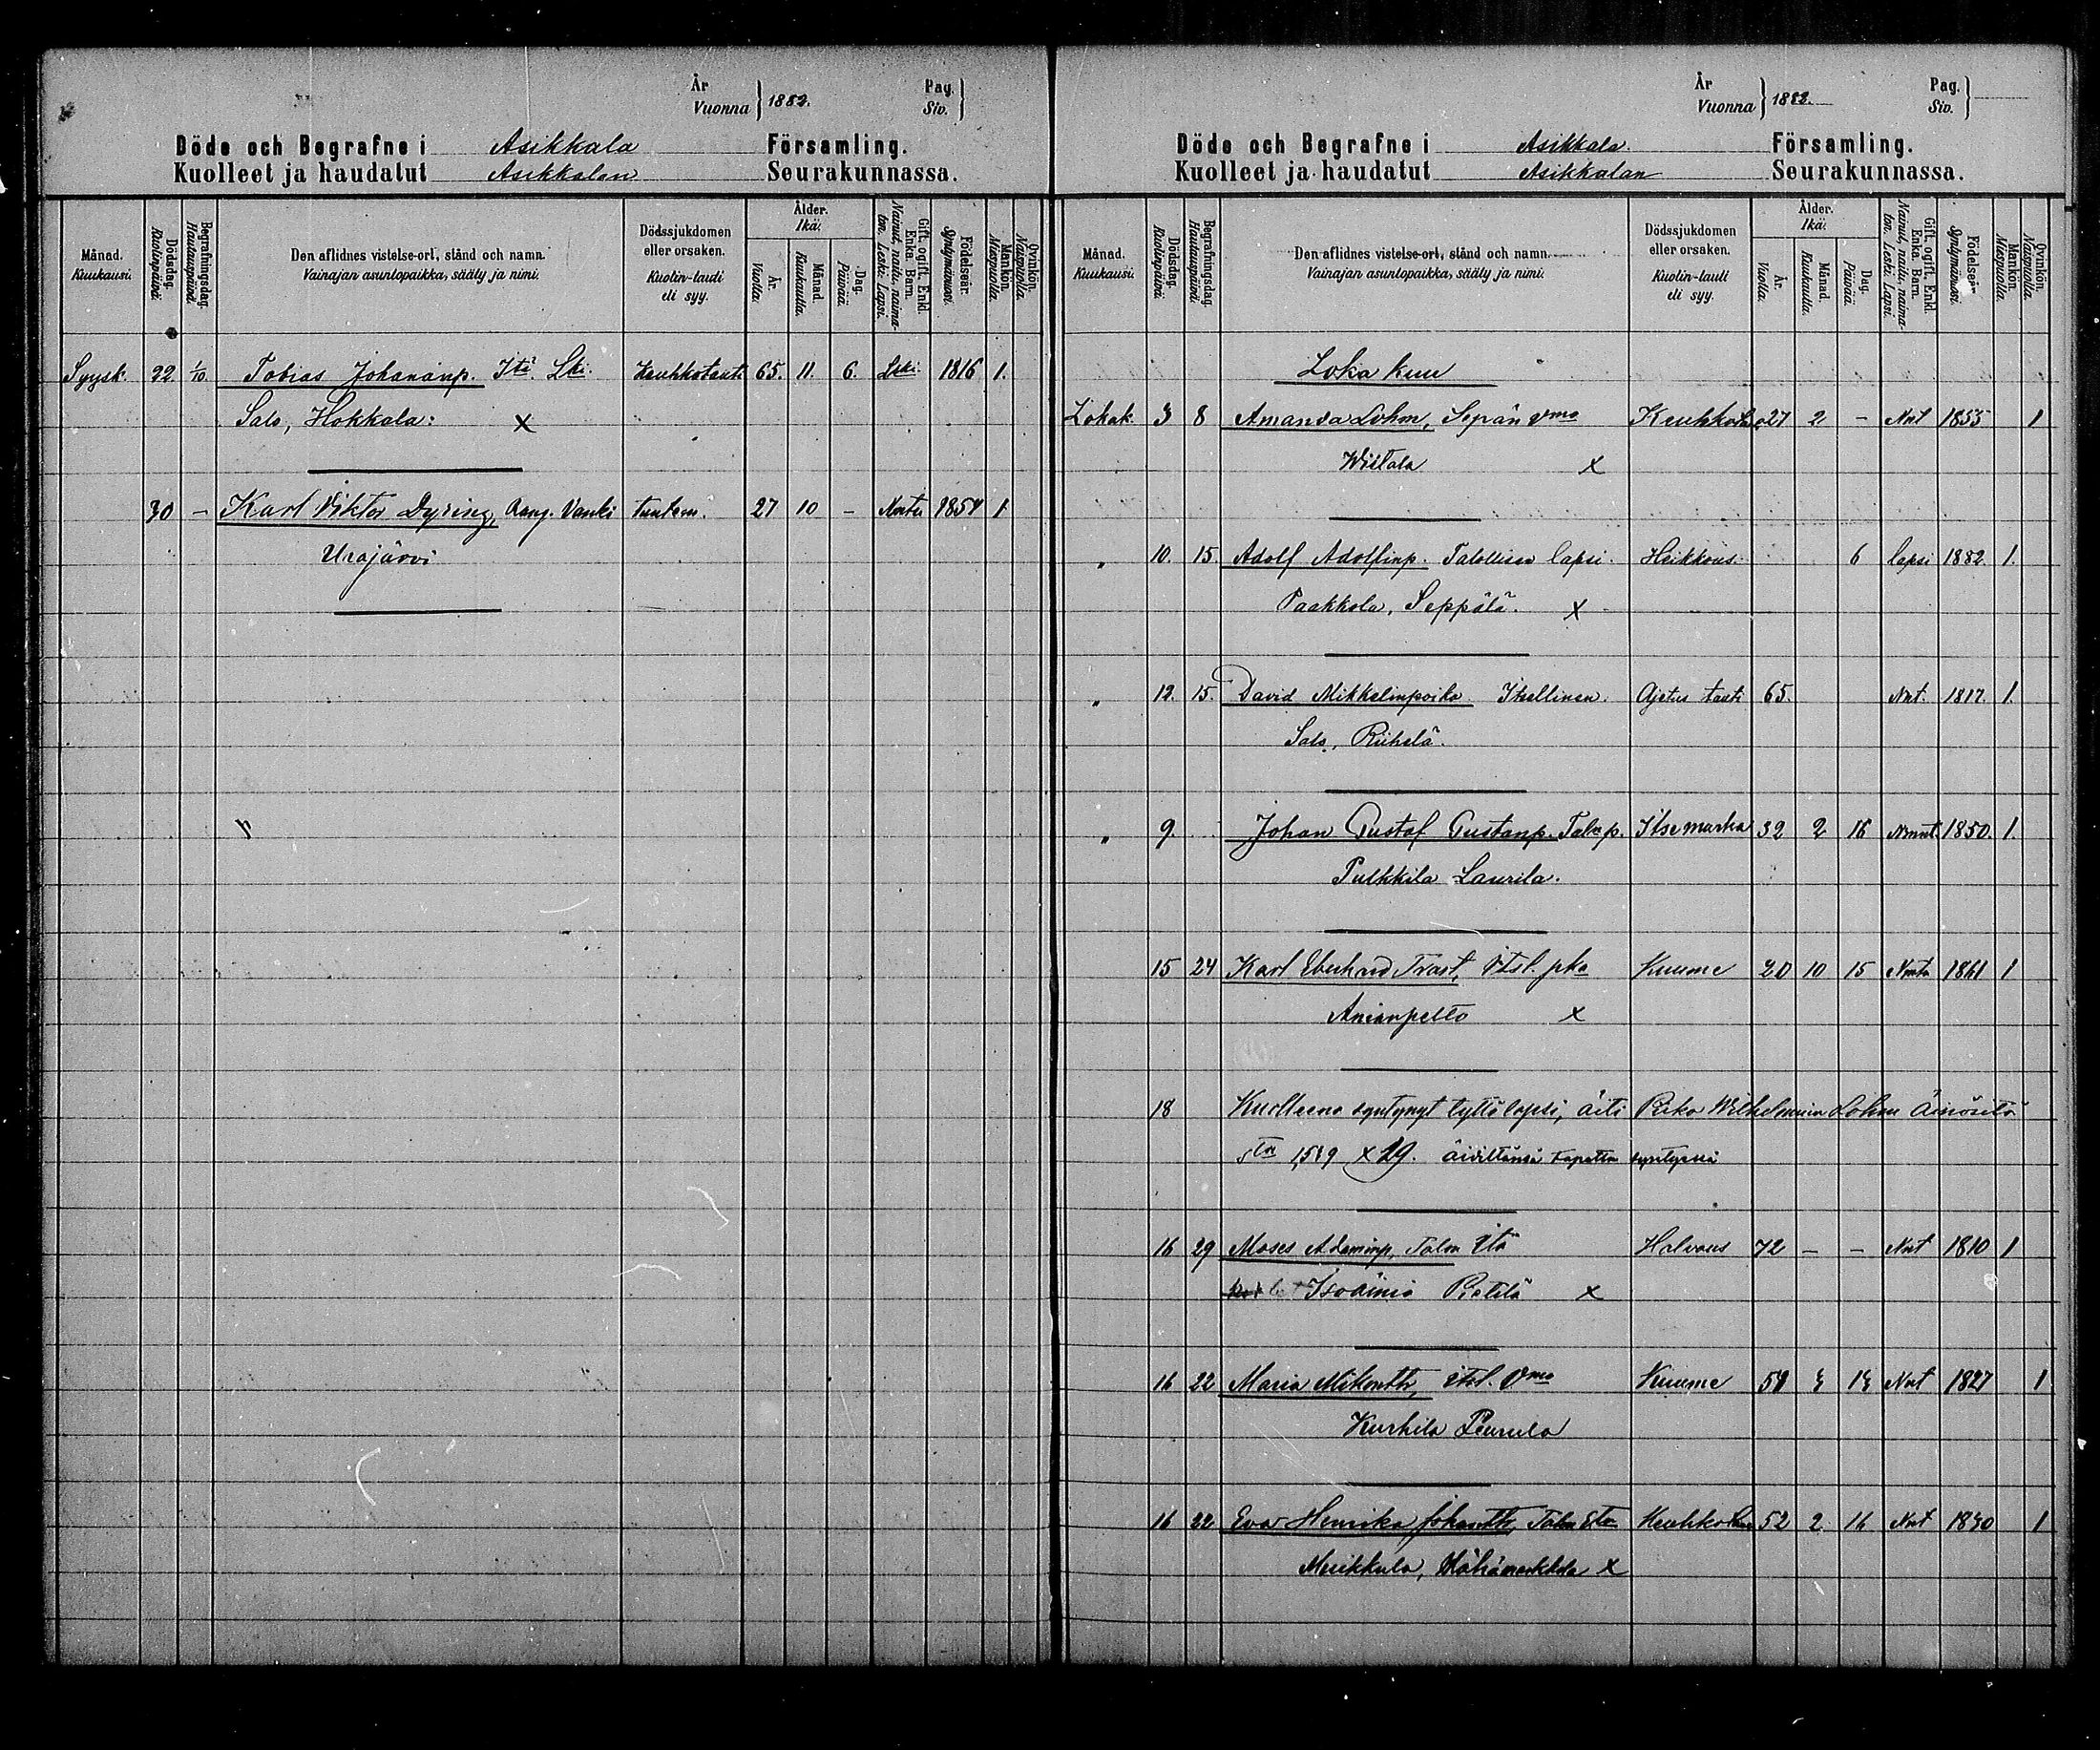 År
Vuonna } 1882.
Pag.
Siv. }
Döde och Begrafne i Asikkala Församling.
Kuolleet ja haudatut Asikkalan Seurakunnassa.
Månad.
Kuukausi.
Dödsdag.
Kuolinpäivä.
Begrafningsdag.
Hautauspäivä.
Den aflidnes vistelse-ort, stånd och namn.
Vainajan asuntopaikka, sääty ja nimi.
Dödssjukdomen
eller orsaken.
Kuolin-tauti
eli syy.
Ålder.
Ikä.
År.
Vuotta.
Månad.
Kuukautta.
Dag.
Päivää.
Gift, ogift, Enkl.
Enka. Barn.
Nainut, naitu, naima-
ton. Leski. Lapsi.
Födelseår.
Syntymävuosi.
Mankön.
Miespuolia.
Qvinkön.
Naispuolia.
Syysk. 22. 1/10. Tobias Johananp. Itä Lki. Keuhkotauti 65. 11. 6. Leki. 1816 1.
Salo, Hokkala: x
30 – Karl Viktor Dyring, Rang. Vanki tuntem. 27 10 – Nmtn 1854 1
Urajärvi
År
Vuonna } 1882.
Pag.
Siv. }
Döde och Begrafne i Asikkala Församling.
Kuolleet ja haudatut Asikkalan Seurakunnassa.
Månad.
Kuukausi.
Dödsdag.
Kuolinpäivä
Begrafningsdag.
Hautauspäivä
Den aflidnes vistelse-ort, stånd och namn.
Vainajan asuntopaikka, sääty ja nimi.
Dödssjukdomen
eller orsaken.
Kuolin-tauti
eli syy.
Ålder.
Ikä.
År.
Vuotta.
Månad.
Kuukautta.
Dag.
Päivää.
Gift, ogift, Enkl.
Enka. Barn.
Nainut, naitu, naima-
ton. Leski. Lapsi.
Födelseår.
Syntymävuosi.
Mankön.
Miespuolia.
Qvinkön.
Naispuolia.
Loka kuu
Lokak. 3 8 Amanda Lohm, Sepän Vmo 27 2 – Nnt 1855 1
Wistala x
" 10. 15. Adolf Adolfinp. Talollisen lapsi. Heikkous. 6 lapsi 1882. 1.
Paakkola, Seppälä. x
" 12. 15. David Mikkelinpoika Itsellinen. Ajetus tauti 65. Nnt. 1817. 1.
Salo, Riihelä.
" 9. Johan Gustaf Gustanp. Taln p. Itse murha 32 2 16 Nmnt. 1850. 1.
Pulkkila Laurila.
15 24 Karl Eberhard Trast, Itsl. pka Kuume 20 10 15 Nmtn 1861 1
Anianpelto x
18 Kuolleena syntynyt tyttölapsi, äiti Piika Wilhelmina Lohm
x 29. äidiltänsä tapettu syntyessä
16 29 Moses Adaminp, Talon Itä Halvaus 72 – – Nnt 1810 1
Isoäiniö Pietilä x
16 22 Maria Mikontr, itsl. Vmo Kuume 54 3 13 Nnt 1827 1
Kurhila Peurula
16 22 Eva Henrika Johantr, Talon Etn 52 2 16 Nnt 1830 1
Muikkula, x